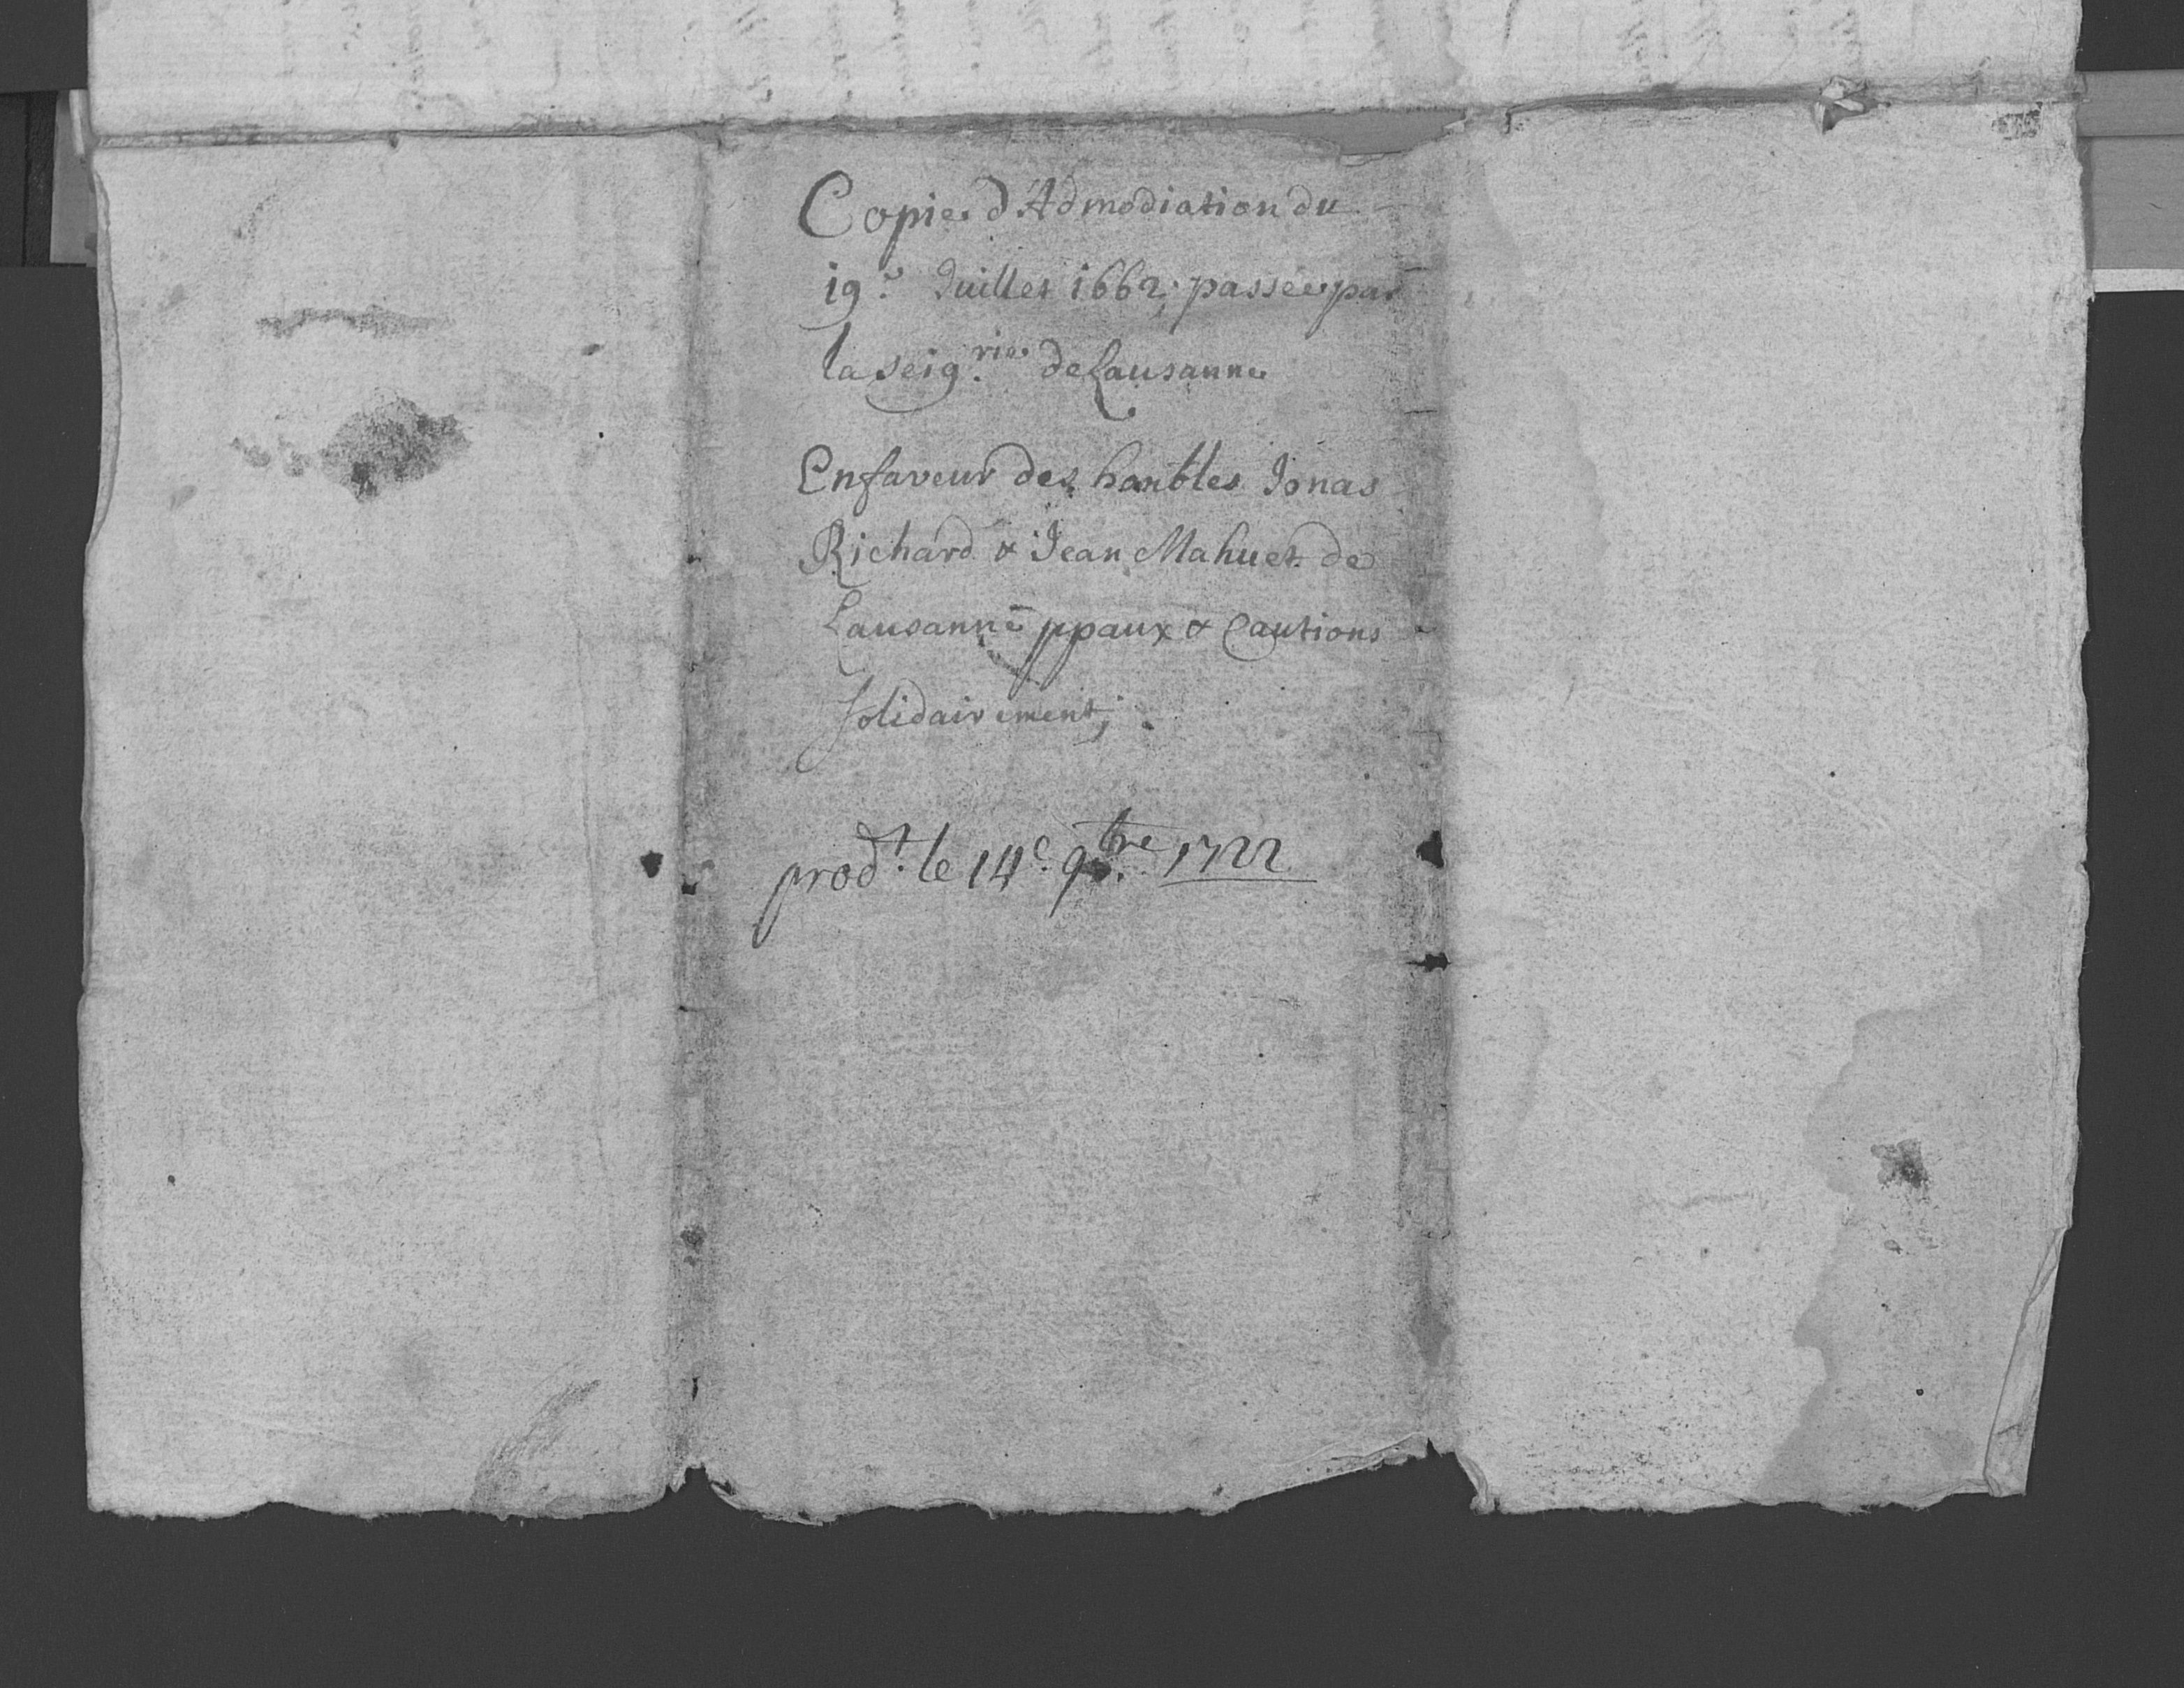 Copie d'Admodiation du
19.e Juillet 1662, passée par
la seig.rie de Lausanne
En faveur des honbles Jonas
Richard & Jean Mahuet de
Lausanne ppaux & Cautions
solidairement;
prodt. le 14e. 9bre. 1722